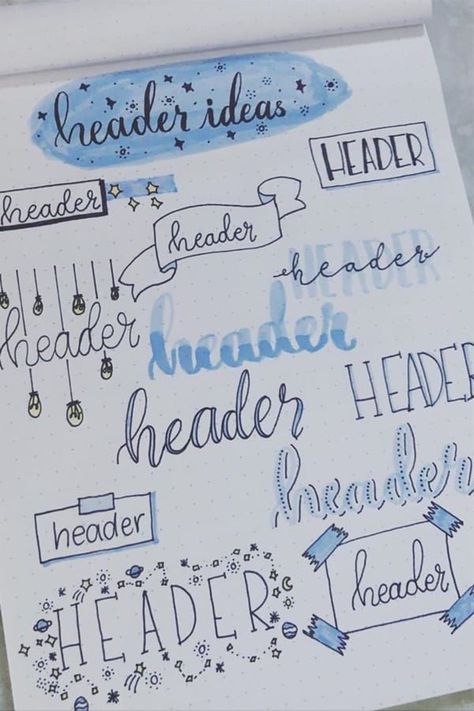 header ideas
HEADER
header
header
HEADER
header
header
header
HEADER
header
header
header
header
HEADER